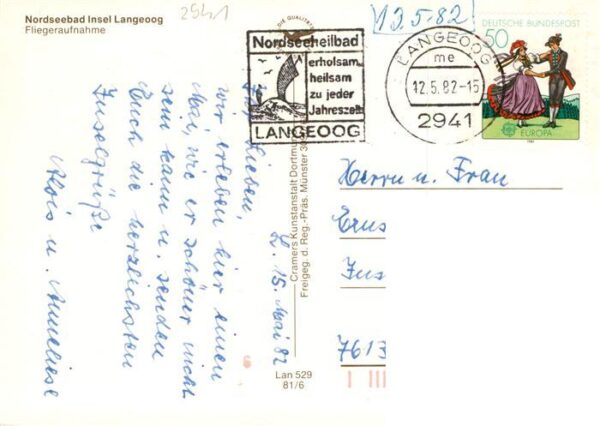 Nordseebad Insel Langeoog
Fliegeraufnahme
2941
DIE QUALITÄT
12.5.82
Nordseeheilbad
erholsam
heilsam
zu jeder
Jahreszeit
LANGEOOG
LANGEOOG
me
12.5.82-15
2941
DEUTSCHE BUNDESPOST
50
EUROPA
L. 15. Mai 82
Lieben,
wir erleben hier einen
Mai, wie er schöner nicht
sein kann u. senden
Euch die herzlichsten
Inselgrüße
Alois u. Anneliese
Cramers Kunstanstalt Dortmund
Freigeg. d. Reg.-Präs. Münster
Lan 529
81/6
6
Herrn u. Frau
Erns
Jus
7613